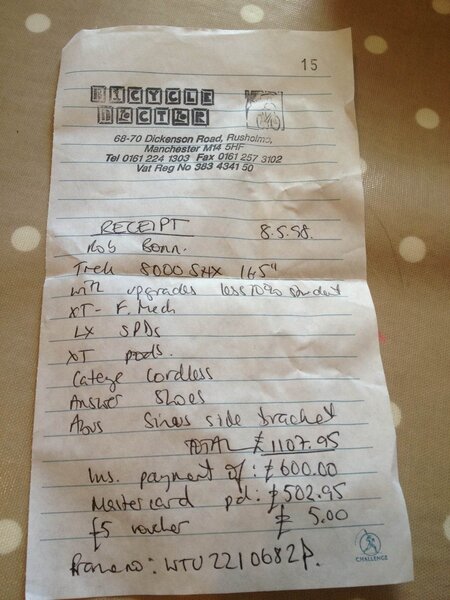 15
BICYCLE
DOCTOR
68-70 Dickenson Road, Rusholme,
Manchester M14 5HF
Tel 0161 224 1303 Fax 0161 257 3102
Vat Reg No 383 4341 50
RECEIPT 8.5.98.
Rob Bonn.
Trek 8000 SHX 16.5"
with upgrades less 10% student
XT - F. Mech
LX SPDs
XT pods.
Cateye Cordless
Answer Shoes
Abus Sinus side bracket
TOTAL £1107.95
Ins. payment of: £600.00
Mastercard pd: £502.95
£5 voucher £ 5.00
Frame no: WTU2210682P.
CHALLENGE